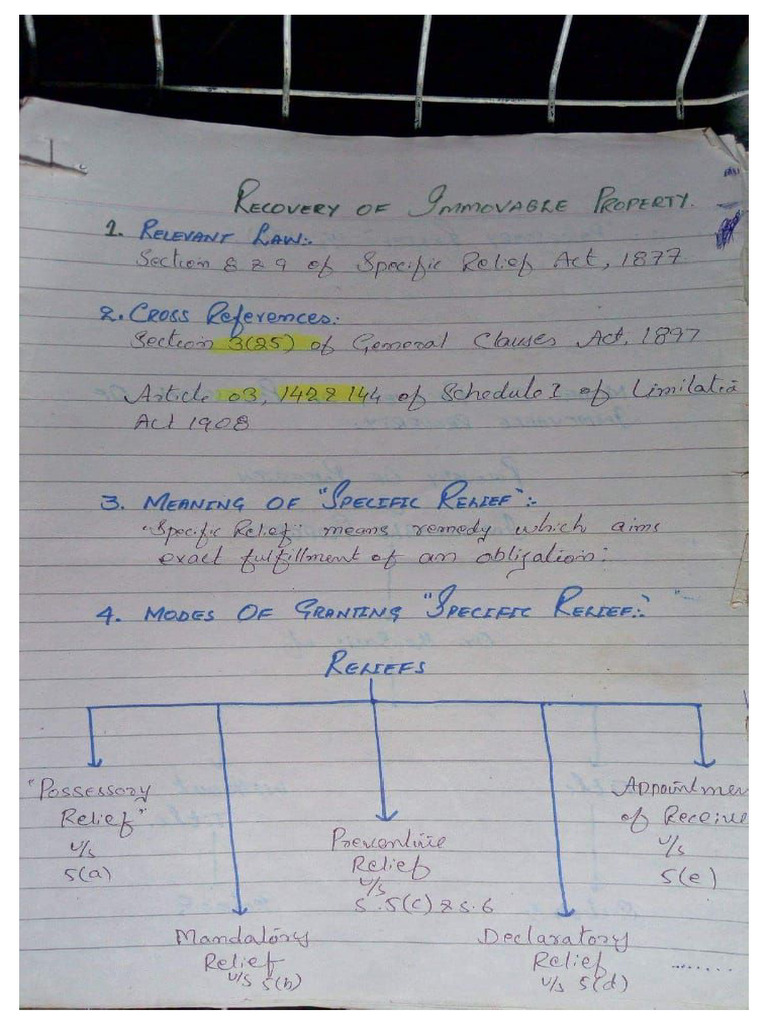 RECOVERY OF IMMOVABLE PROPERTY.
1. RELEVANT LAW:.
Section 8 & 9 of Specific Relief Act, 1877
2. CROSS References:
Section 3(25) of General Clauses Act, 1897
Article 03, 142 & 144 of Schedule I of Limitatio
Act 1908
3. MEANING OF "SPECIFIC RELIEF":.
"Specific Relief" means remedy which aims
exact fulfillment of an obligation.
4. MODES OF GRANTING "SPECIFIC RELIEF:."
RELIEFS
"Possessory
Relief"
u/s
5(a)
Mandatory
Relief
u/s 5(b)
Preventive
Relief
u/s
s.5(c) & s.6
Declaratory
Relief
u/s 5(d)
Appointmen
of Receive
u/s
5(e)
........